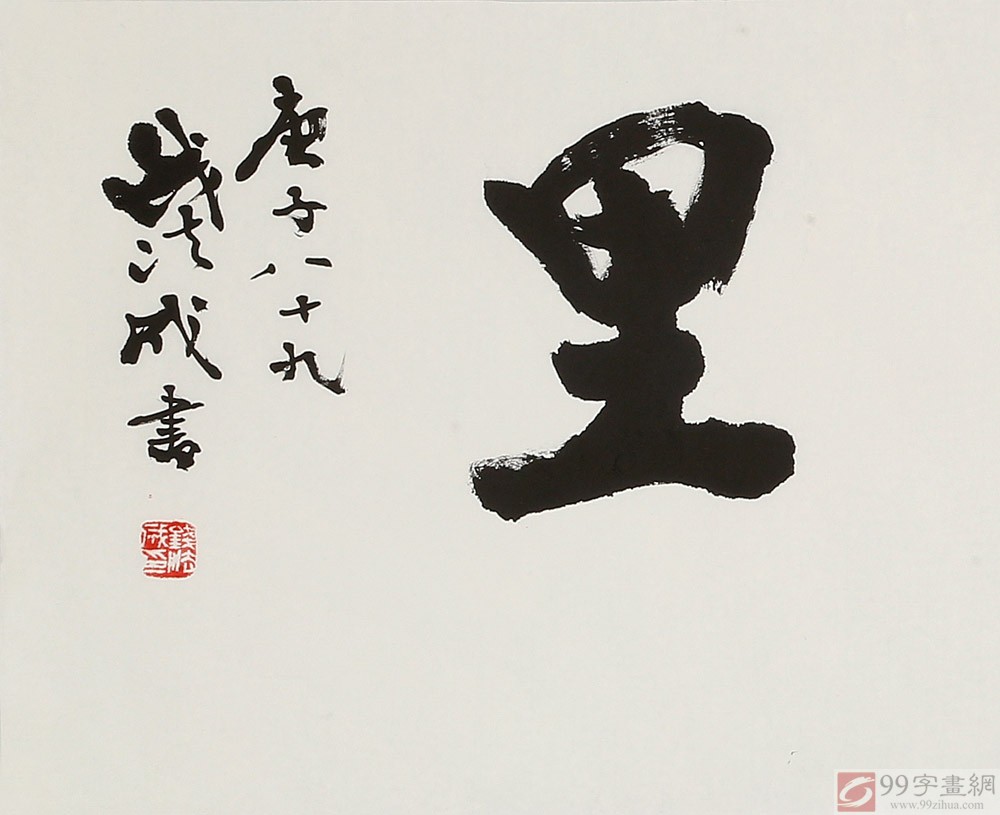 里
庚子八十九
钱法成书
錢法成印
99字畫網
www.99zihua.com